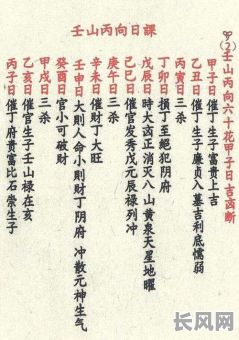 壬山丙向日課
壬山丙向六十花甲子日吉凶断
甲子日催丁生子富贵上吉
乙丑日催丁生子廉贞入墓吉利底懦弱
丙寅日三杀
丁卯日損丁至絕犯阴府
戊辰日時大凶正消灭八山黄泉天星地曜
己巳日催官发秀戊元辰禄列冲
庚午日三杀
辛未日催财丁大旺
壬申日大則人命小則财丁阴府 冲散元神生气
癸酉日官小可破财
甲戌日三杀
乙亥日催官生子壬山禄在亥
丙子日催丁府贵富比石崇生子
长风网